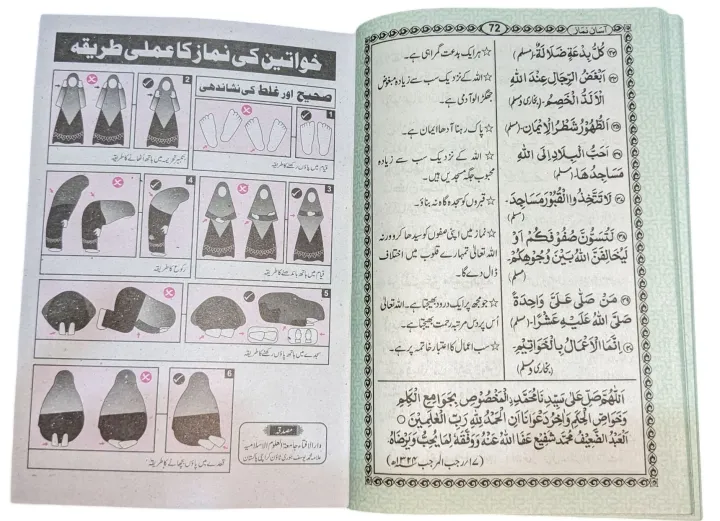 خواتین کی نماز کا عملی طریقہ
صحیح اور غلط کی نشاندھی
1
قیام میں پاؤں رکھنے کا طریقہ
2
تکبیر تحریمہ میں ہاتھ اُٹھانے کا طریقہ
3
قیام میں ہاتھ باندھنے کا طریقہ
4
رکوع کا طریقہ
5
سجدے میں ہاتھ پاؤں رکھنے کا طریقہ
6
قعدے میں پاؤں بٹھانے کا طریقہ
مصدقہ
دارالافتاء جامعۃ العلوم الاسلامیہ
علامہ محمد یوسف بنوری ٹاؤن کراچی پاکستان
آسان نماز
72
كُلُّ بِدْعَةٍ ضَلَالَةٌ (مسلم)
☆ ہر ایک بدعت گمراہی ہے۔
اَبْغَضُ الرِّجَالِ عِنْدَ اللّٰهِ
الْاَلَدُّ الْخَصِمُ۔ (بخاری ومسلم)
☆ اللہ کے نزدیک سب سے زیادہ مبغوض
جھگڑالو آدمی ہے۔
اَلطُّهُوْرُ شَطْرُ الْاِيْمَانِ۔ (مسلم)
☆ پاک رہنا آدھا ایمان ہے۔
اَحَبُّ الْبِلَادِ اِلَى اللّٰهِ
مَسَاجِدُهَا۔ (مسلم)
☆ اللہ کے نزدیک سب سے زیادہ
محبوب جگہ مسجدیں ہیں۔
لَا تَتَّخِذُوا الْقُبُوْرَ مَسَاجِدَ۔
(مسلم)
☆ قبروں کو سجدہ گاہ نہ بناؤ۔
لَتُسَوُّنَّ صُفُوْفَكُمْ اَوْ
لَيُخَالِفَنَّ اللّٰهُ بَيْنَ وُجُوْهِكُمْ۔
(مسلم)
☆ نماز میں اپنی صفوں کو سیدھا کرو ورنہ
اللہ تعالیٰ تمہارے قلوب میں اختلاف
ڈال دے گا۔
مَنْ صَلّٰى عَلَيَّ وَاحِدَةً
صَلَّى اللّٰهُ عَلَيْهِ عَشْرًا۔ (مسلم)
☆ جو مجھ پر ایک درود بھیجتا ہے۔ اللہ تعالیٰ
اُس پر دس مرتبہ رحمت بھیجتا ہے۔
اِنَّمَا الْاَعْمَالُ بِالْخَوَاتِيْمِ۔
(بخاری ومسلم)
☆ سب اعمال کا اعتبار خاتمہ پر ہے۔
اَللّٰهُمَّ صَلِّ عَلٰى سَيِّدِنَا مُحَمَّدِ ۨالْمَخْصُوْصِ بِجَوَامِعِ الْكَلِمِ
وَخَوَاصِّ الْحِكَمِ وَاٰخِرُ دَعْوَانَا اَنِ الْحَمْدُ لِلّٰهِ رَبِّ الْعٰلَمِيْنَ
اَلْعَبْدُ الضَّعِيْفُ مُحَمَّد شَفِيْع عَفَا اللّٰهُ عَنْهُ وَوَفَّقَهٗ لِمَا يُحِبُّ وَيَرْضَاهُ
(۱۷/رجب المرجب ۱۳۴۴ھ)